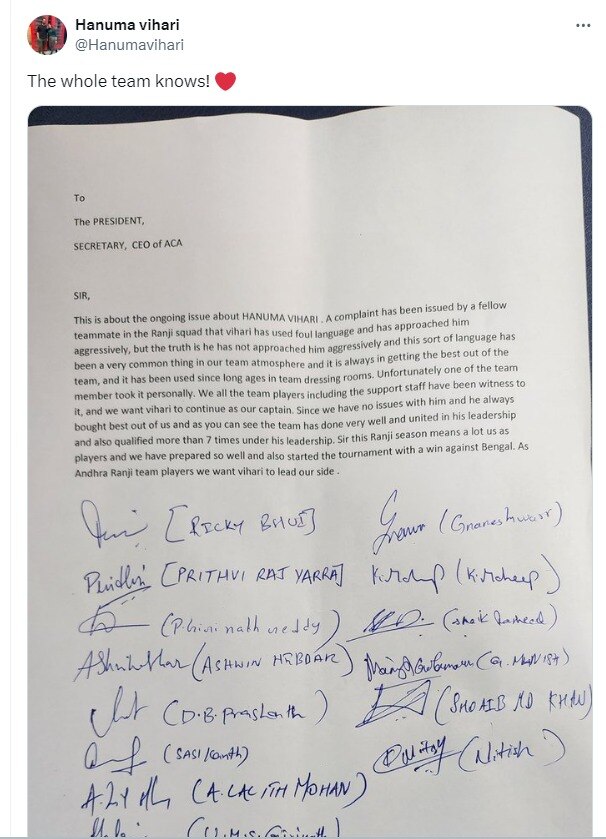 Hanuma vihari
@Hanumavihari
The whole team knows!
To
The PRESIDENT,
SECRETARY, CEO of ACA
SIR,
This is about the ongoing issue about HANUMA VIHARI . A complaint has been issued by a fellow
teammate in the Ranji squad that vihari has used foul language and has approached him
aggressively, but the truth is he has not approached him aggressively and this sort of language has
been a very common thing in our team atmosphere and it is always in getting the best out of the
team, and it has been used since long ages in team dressing rooms. Unfortunately one of the team
member took it personally. We all the team players including the support staff have been witness to
it, and we want vihari to continue as our captain. Since we have no issues with him and he always
bought best out of us and as you can see the team has done very well and united in his leadership
and also qualified more than 7 times under his leadership. Sir this Ranji season means a lot us as
players and we have prepared so well and also started the tournament with a win against Bengal. As
Andhra Ranji team players we want vihari to lead our side .
[RICKY BHUI] (Gnaneshwar)
[PRITHVI RAJ YARRA]
(shaik Rasheed)
(ASHWIN HEBBAR)
(D.B. Prashanth) (SHOAIB MD KHAN)
(SASI/Kanth) (Nitish)
(A. LALITH MOHAN)